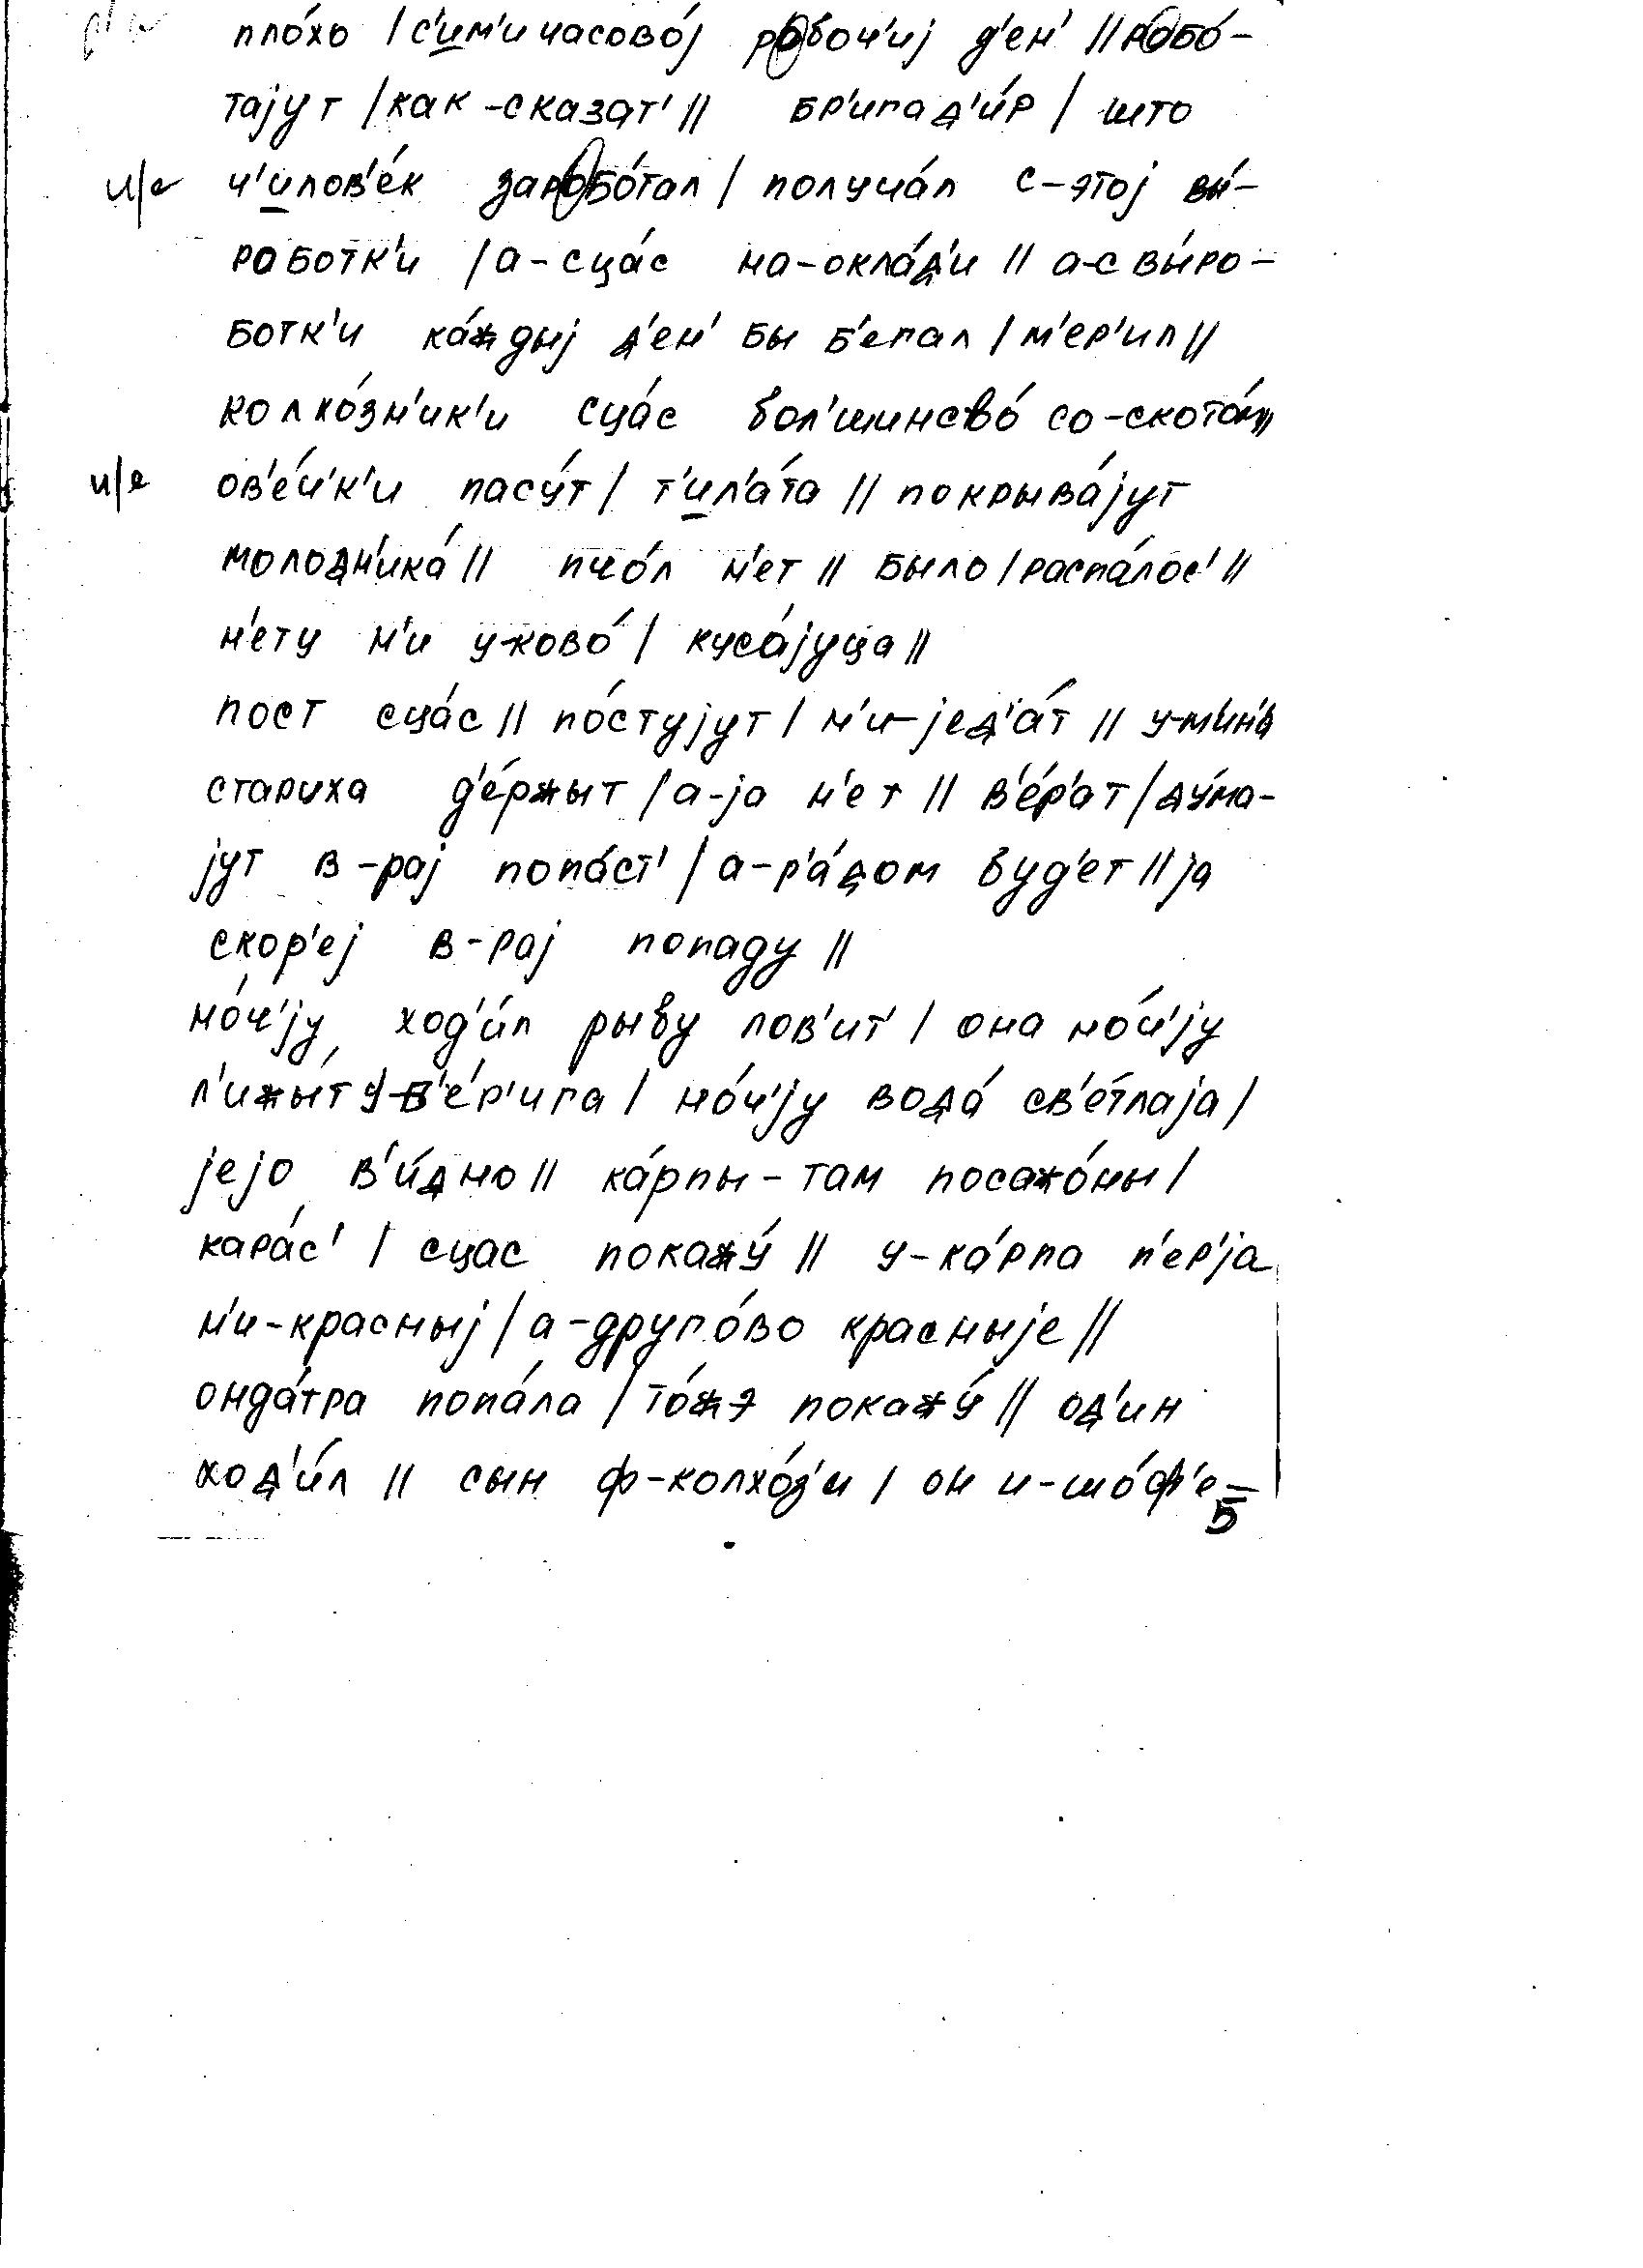 пло́хо / с'им'и часово́ј робоч'иј д'ен' // робо́-
тајут / как-сказат' // бр'игад'и́р / што
и/е ч'илов'е́к заробо́тал / получа́л с-этој вы́-
роботк'и / а-сца́с на-окла́д'и // а-с вы́ро-
ботк'и ка́ждыј д'ен' бы б'егал / м'ер'ил //
колхо́зн'ик'и сца́с бол'шинсво́ со-ското́м //
и/е ов'е́ч'к'и пасу́т / т'ил'а́та // покрыва́јут
молодн'ика́ // пчо́л н'ет // было / распа́лос' //
н'ету н'и у-ково́ / куса́јуца //
пост сца́с // по́стујут / н'и-јед'а́т // у-м'ин'а
стариха д'е́ржыт / а-ја н'ет // в'е́р'ат / ду́ма-
јут в-рај попа́ст' / а-р'а́дом буд'ет // ја
скор'еј в-рај попаду //
но́ч'ју ход'и́л рыбу лов'ит' / она но́ч'ју
л'ижы́т у-б'е́р'ига / но́ч'ју вода́ св'е́тлаја /
јејо в'и́дно // ка́рпы-там посажо́ны /
кара́с' / сцас покажу́ // у-ка́рпа п'ер'ја
н'и-красныј / а-друго́во красныје //
онда́тра попа́ла / то́жэ покажу́ // од'ин
ход'и́л // сын ф-колхо́з'и / он и-шо́ф'е-
5